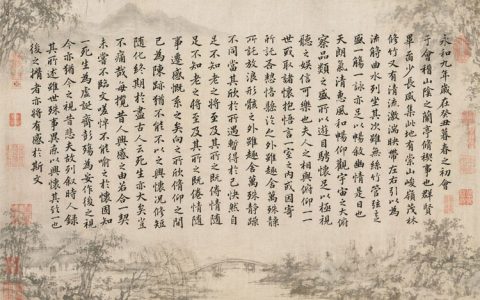 永和九年歲在癸丑暮春之初會
于會稽山陰之蘭亭脩稧事也群賢
畢少長咸集此地有崇山峻嶺茂林
修竹又有清流激湍映帶左右引以為
流觴曲水列坐其次雖無絲竹管弦之
盛一觴一詠亦足以暢敘幽情是日也
天朗氣清惠風和暢仰觀宇宙之大俯
察品類之盛所以遊目騁懷足以極視
聽之娛信可樂也夫人之相與俯仰一
世或取諸懷抱悟言一室之內或因寄
所託於之外雖趣舍萬殊靜
所託放浪形骸之外雖趣舍萬殊靜躁
不同當其欣於所遇暫得於己快然自
足不知老之將至及其所之既倦情隨
足不知老之將至及其所之既倦情隨
事遷感慨系之矣向之所欣俯仰之間
已為陳跡猶不能不以之興懷況修短
隨化終期於盡古人云死生亦大矣豈
不痛哉每攬昔人興感之由若合一契
未嘗不臨文嗟悼不能喻之於懷固知
一死生為虛誕齊彭殤為妄作後之視
今亦猶今之視昔悲夫故列敘時人錄
其所述雖世殊事異所以興懷其致一也
後之攬者亦將有感於斯文